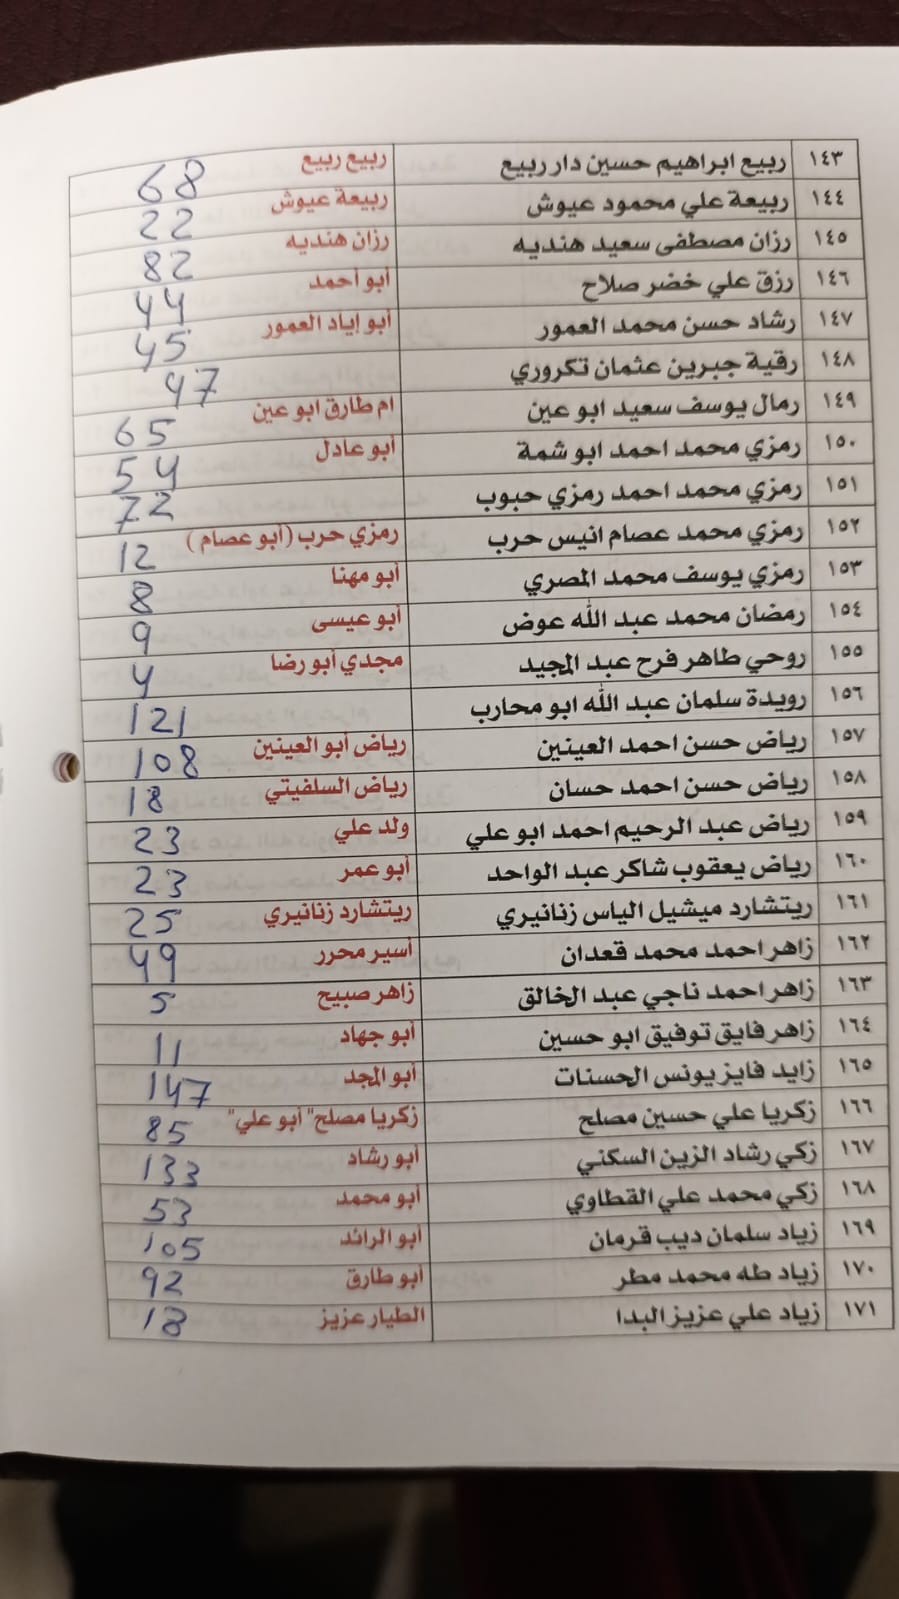 ١٤٣ ربيع ابراهيم حسين دار ربيع ربيع ربيع 68
١٤٤ ربيعة علي محمود عيوش ربيعة عيوش 22
١٤٥ رزان مصطفى سعيد هنديه رزان هنديه 82
١٤٦ رزق علي خضر صلاح أبو أحمد 44
١٤٧ رشاد حسن محمد العمور أبو إياد العمور 45
١٤٨ رقية جبرين عثمان تكروري 47
١٤٩ رمال يوسف سعيد ابو عين ام طارق ابو عين 65
١٥٠ رمزي محمد احمد ابو شمة أبو عادل 54
١٥١ رمزي محمد احمد رمزي حبوب 72
١٥٢ رمزي محمد عصام انيس حرب رمزي حرب (أبو عصام ) 12
١٥٣ رمزي يوسف محمد المصري أبو مهنا 8
١٥٤ رمضان محمد عبد الله عوض أبو عيسى 9
١٥٥ روحي طاهر فرح عبد المجيد مجدي أبو رضا 4
١٥٦ رويدة سلمان عبد الله ابو محارب 121
١٥٧ رياض حسن احمد العينين رياض أبو العينين 108
١٥٨ رياض حسن احمد حسان رياض السلفيتي 18
١٥٩ رياض عبد الرحيم احمد ابو علي ولد علي 23
١٦٠ رياض يعقوب شاكر عبد الواحد أبو عمر 23
١٦١ ريتشارد ميشيل الياس زنانيري ريتشارد زنانيري 25
١٦٢ زاهر احمد محمد قعدان أسير محرر 49
١٦٣ زاهر احمد ناجي عبد الخالق زاهر صبيح 5
١٦٤ زاهر فايق توفيق ابو حسين أبو جهاد 11
١٦٥ زايد فايز يونس الحسنات أبو المجد 147
١٦٦ زكريا علي حسين مصلح زكريا مصلح" أبو علي" 85
١٦٧ زكي رشاد الزين السكني أبو رشاد 133
١٦٨ زكي محمد علي القطاوي أبو محمد 53
١٦٩ زياد سلمان ديب قرمان أبو الرائد 105
١٧٠ زياد طه محمد مطر أبو طارق 92
١٧١ زياد علي عزيز البدا الطيار عزيز 18